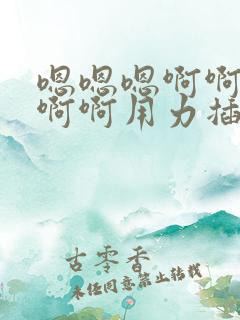 嗯嗯嗯啊啊
啊啊用力插
古零香
未经同意禁止转载